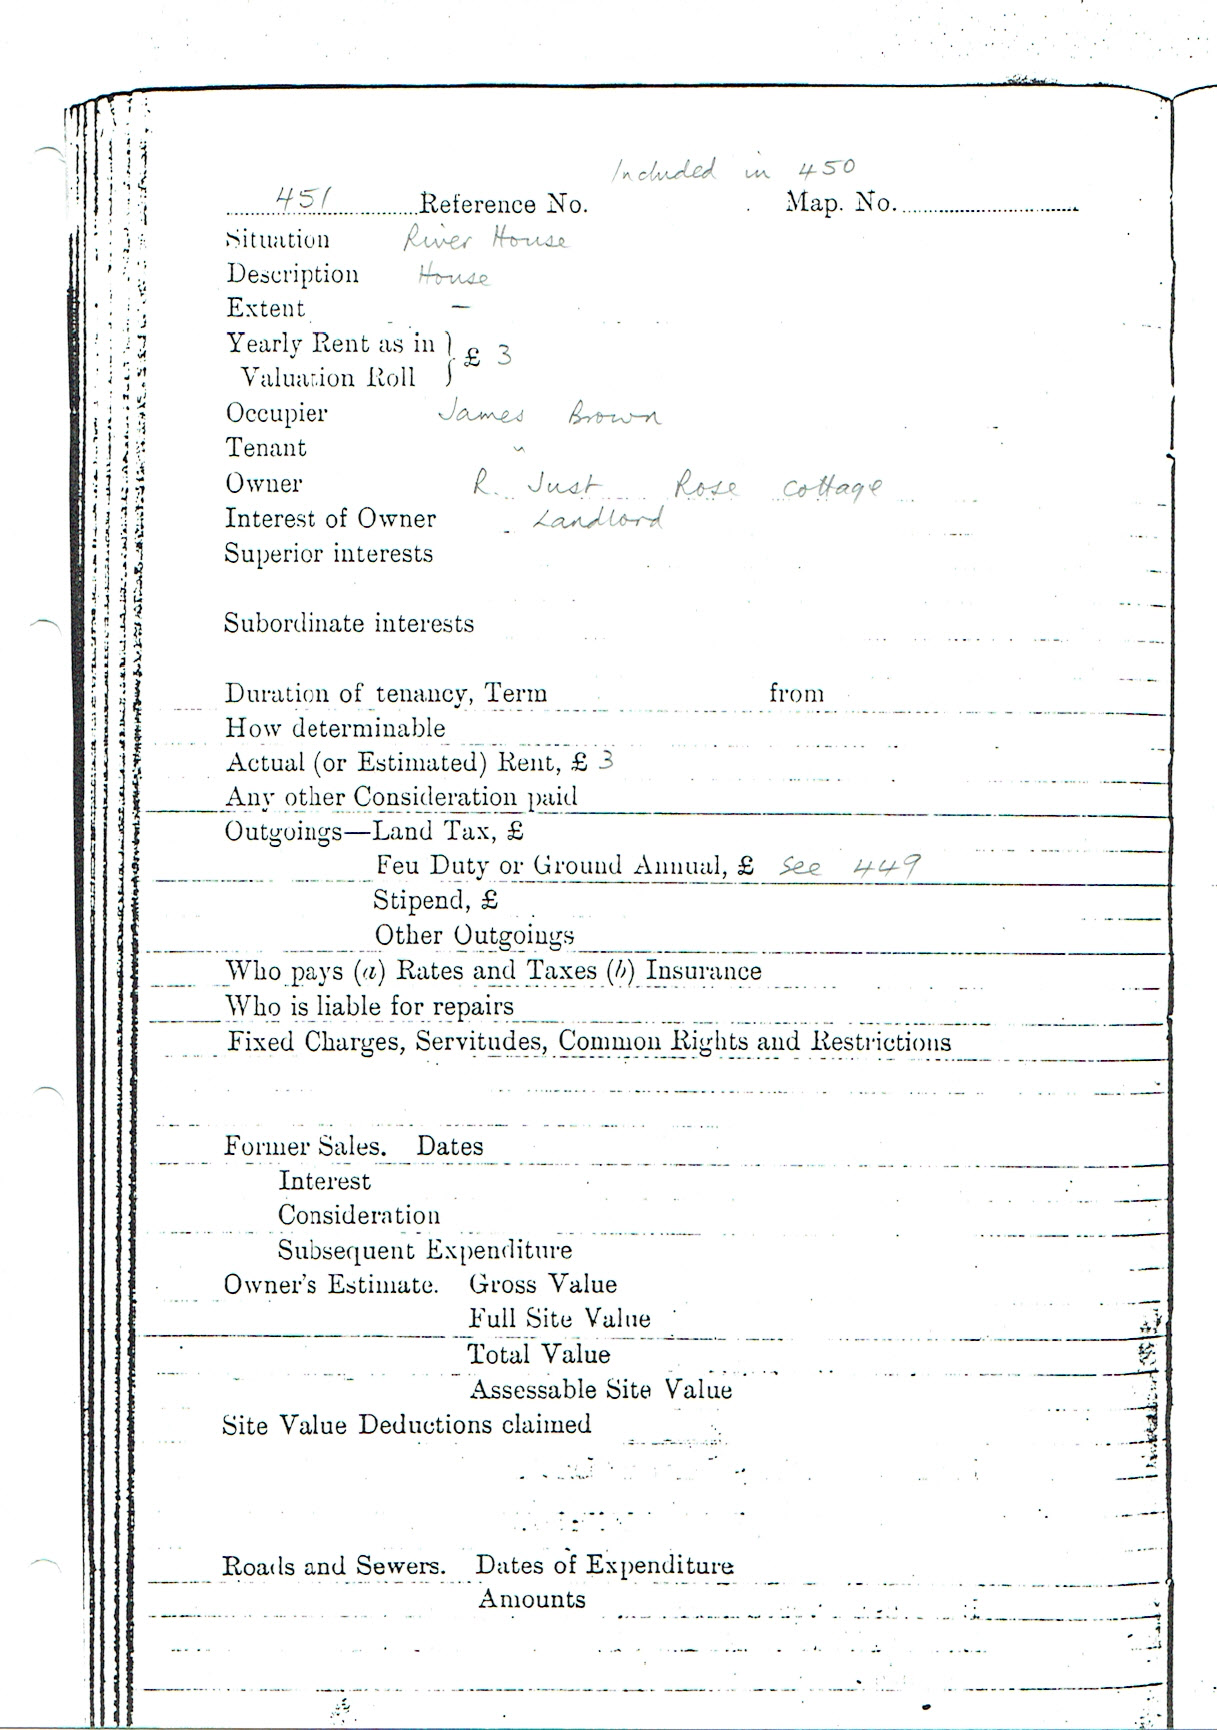 Included in 450
451 Reference No. Map. No.
Situation River House
Description House
Extent —
Yearly Rent as in
Valuation Roll } £ 3
Occupier James Brown
Tenant "
Owner R. Just Rose Cottage
Interest of Owner Landlord
Superior interests
Subordinate interests
Duration of tenancy, Term from
How determinable
Actual (or Estimated) Rent, £ 3
Any other Consideration paid
Outgoings—Land Tax, £
Feu Duty or Ground Annual, £ see 449
Stipend, £
Other Outgoings
Who pays (a) Rates and Taxes (b) Insurance
Who is liable for repairs
Fixed Charges, Servitudes, Common Rights and Restrictions
Former Sales. Dates
Interest
Consideration
Subsequent Expenditure
Owner's Estimate. Gross Value
Full Site Value
Total Value
Assessable Site Value
Site Value Deductions claimed
Roads and Sewers. Dates of Expenditure
Amounts